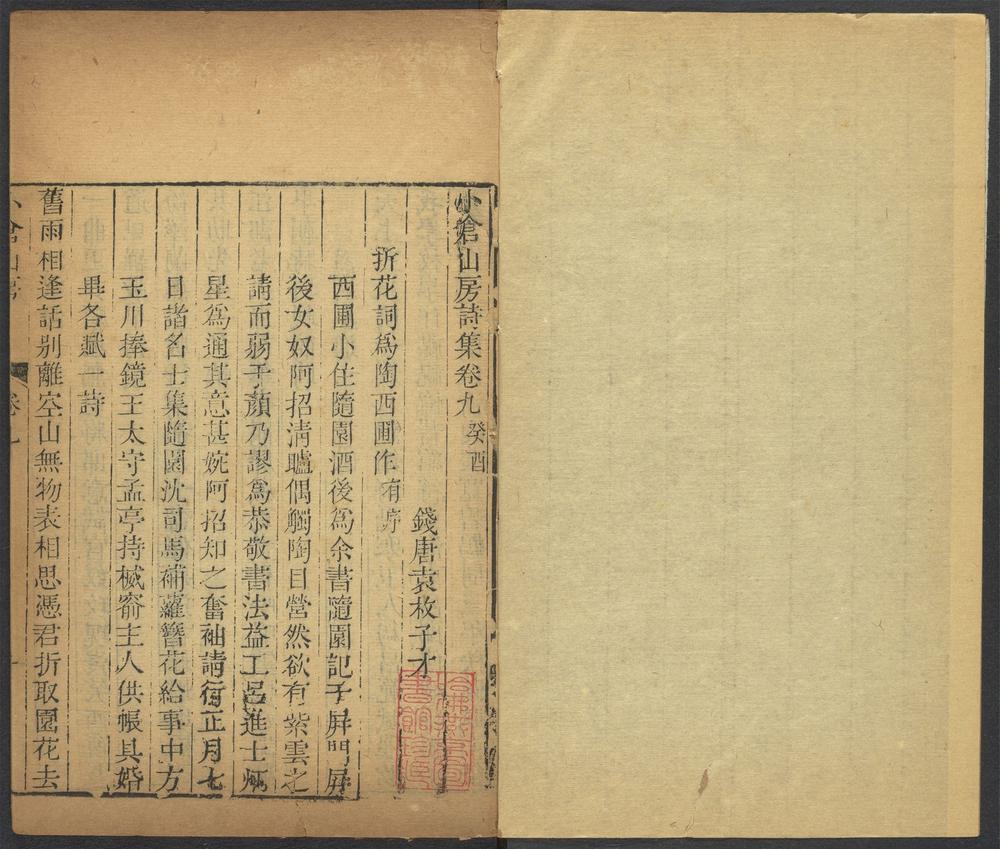 小倉山房詩集卷九 癸酉
錢唐袁枚子才
折花詞為陶西圃作 有序
西圃小住隨園酒後為余書隨園記于屏門屏
後女奴阿招清矑偶觸陶目營然欲有紫雲之
請而弱于顏乃謬為恭敬書法益工呂進士炳
星為通其意甚婉阿招知之奮袖請行正月七
日諸名士集隨園沈司馬補蘿簪花給事中方
玉川捧鏡王太守孟亭持槭窬主人供帳具婚
畢各賦一詩
舊雨相逢話别離空山無物表相思憑君折取園花去
小倉山房
卷九